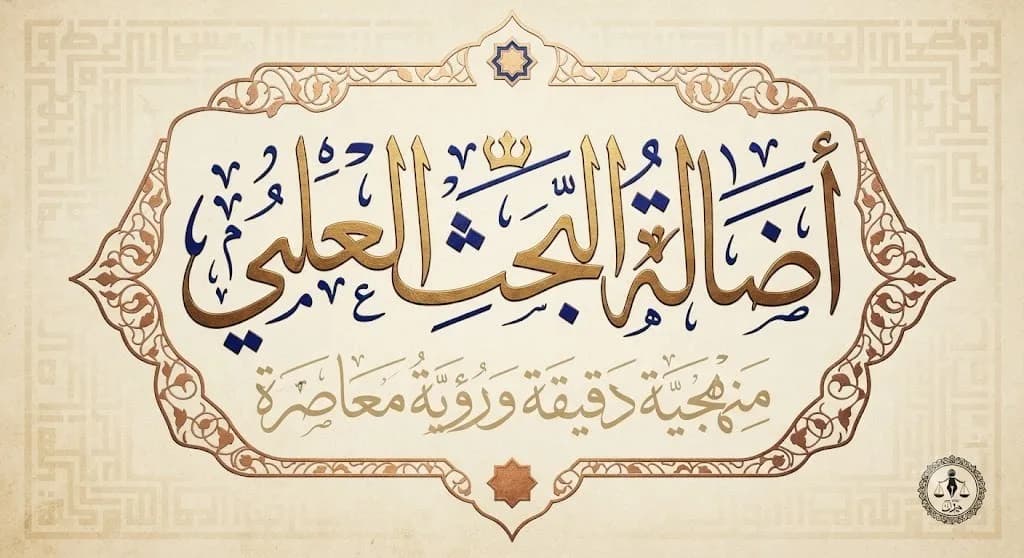 أضالة البحث العلمي
مَنْهَجيَّة دَقيقَة وَرُؤيَّةُ مَعَاصَرَة